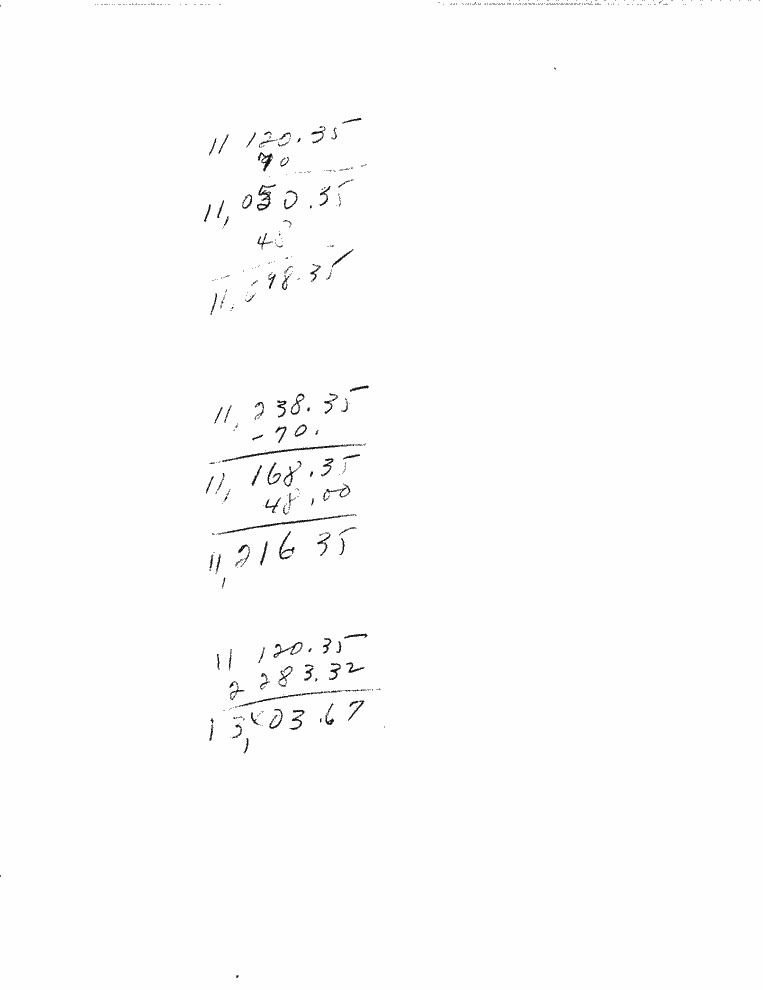 11 120.35
70
11,050.35
48
11,098.35
11,238.35
-70.
11,168.35
48.00
11,216 35
11 120.35
2 283.32
13,403.67